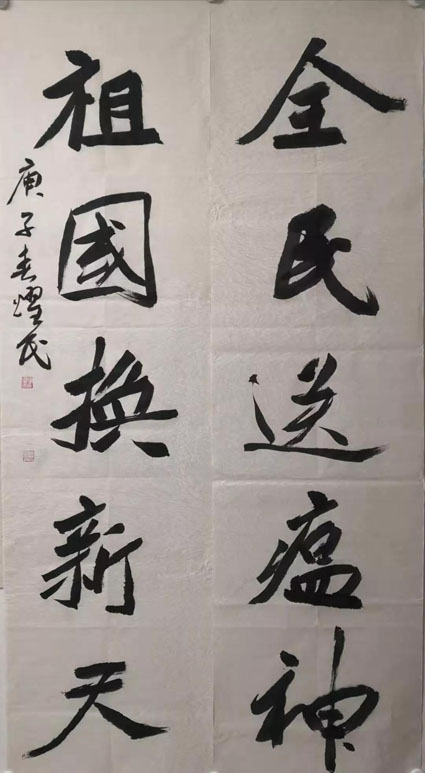 全民送瘟神
祖國換新天
庚子春耀民